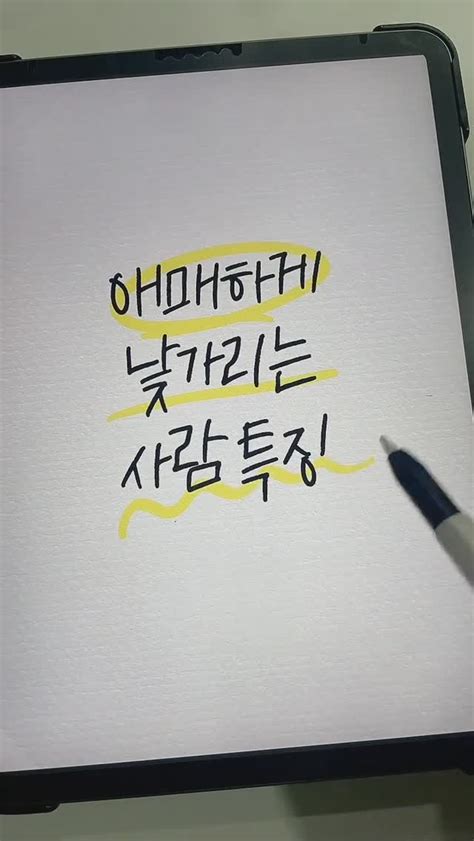 애매하게
낯가리는
사람 특징